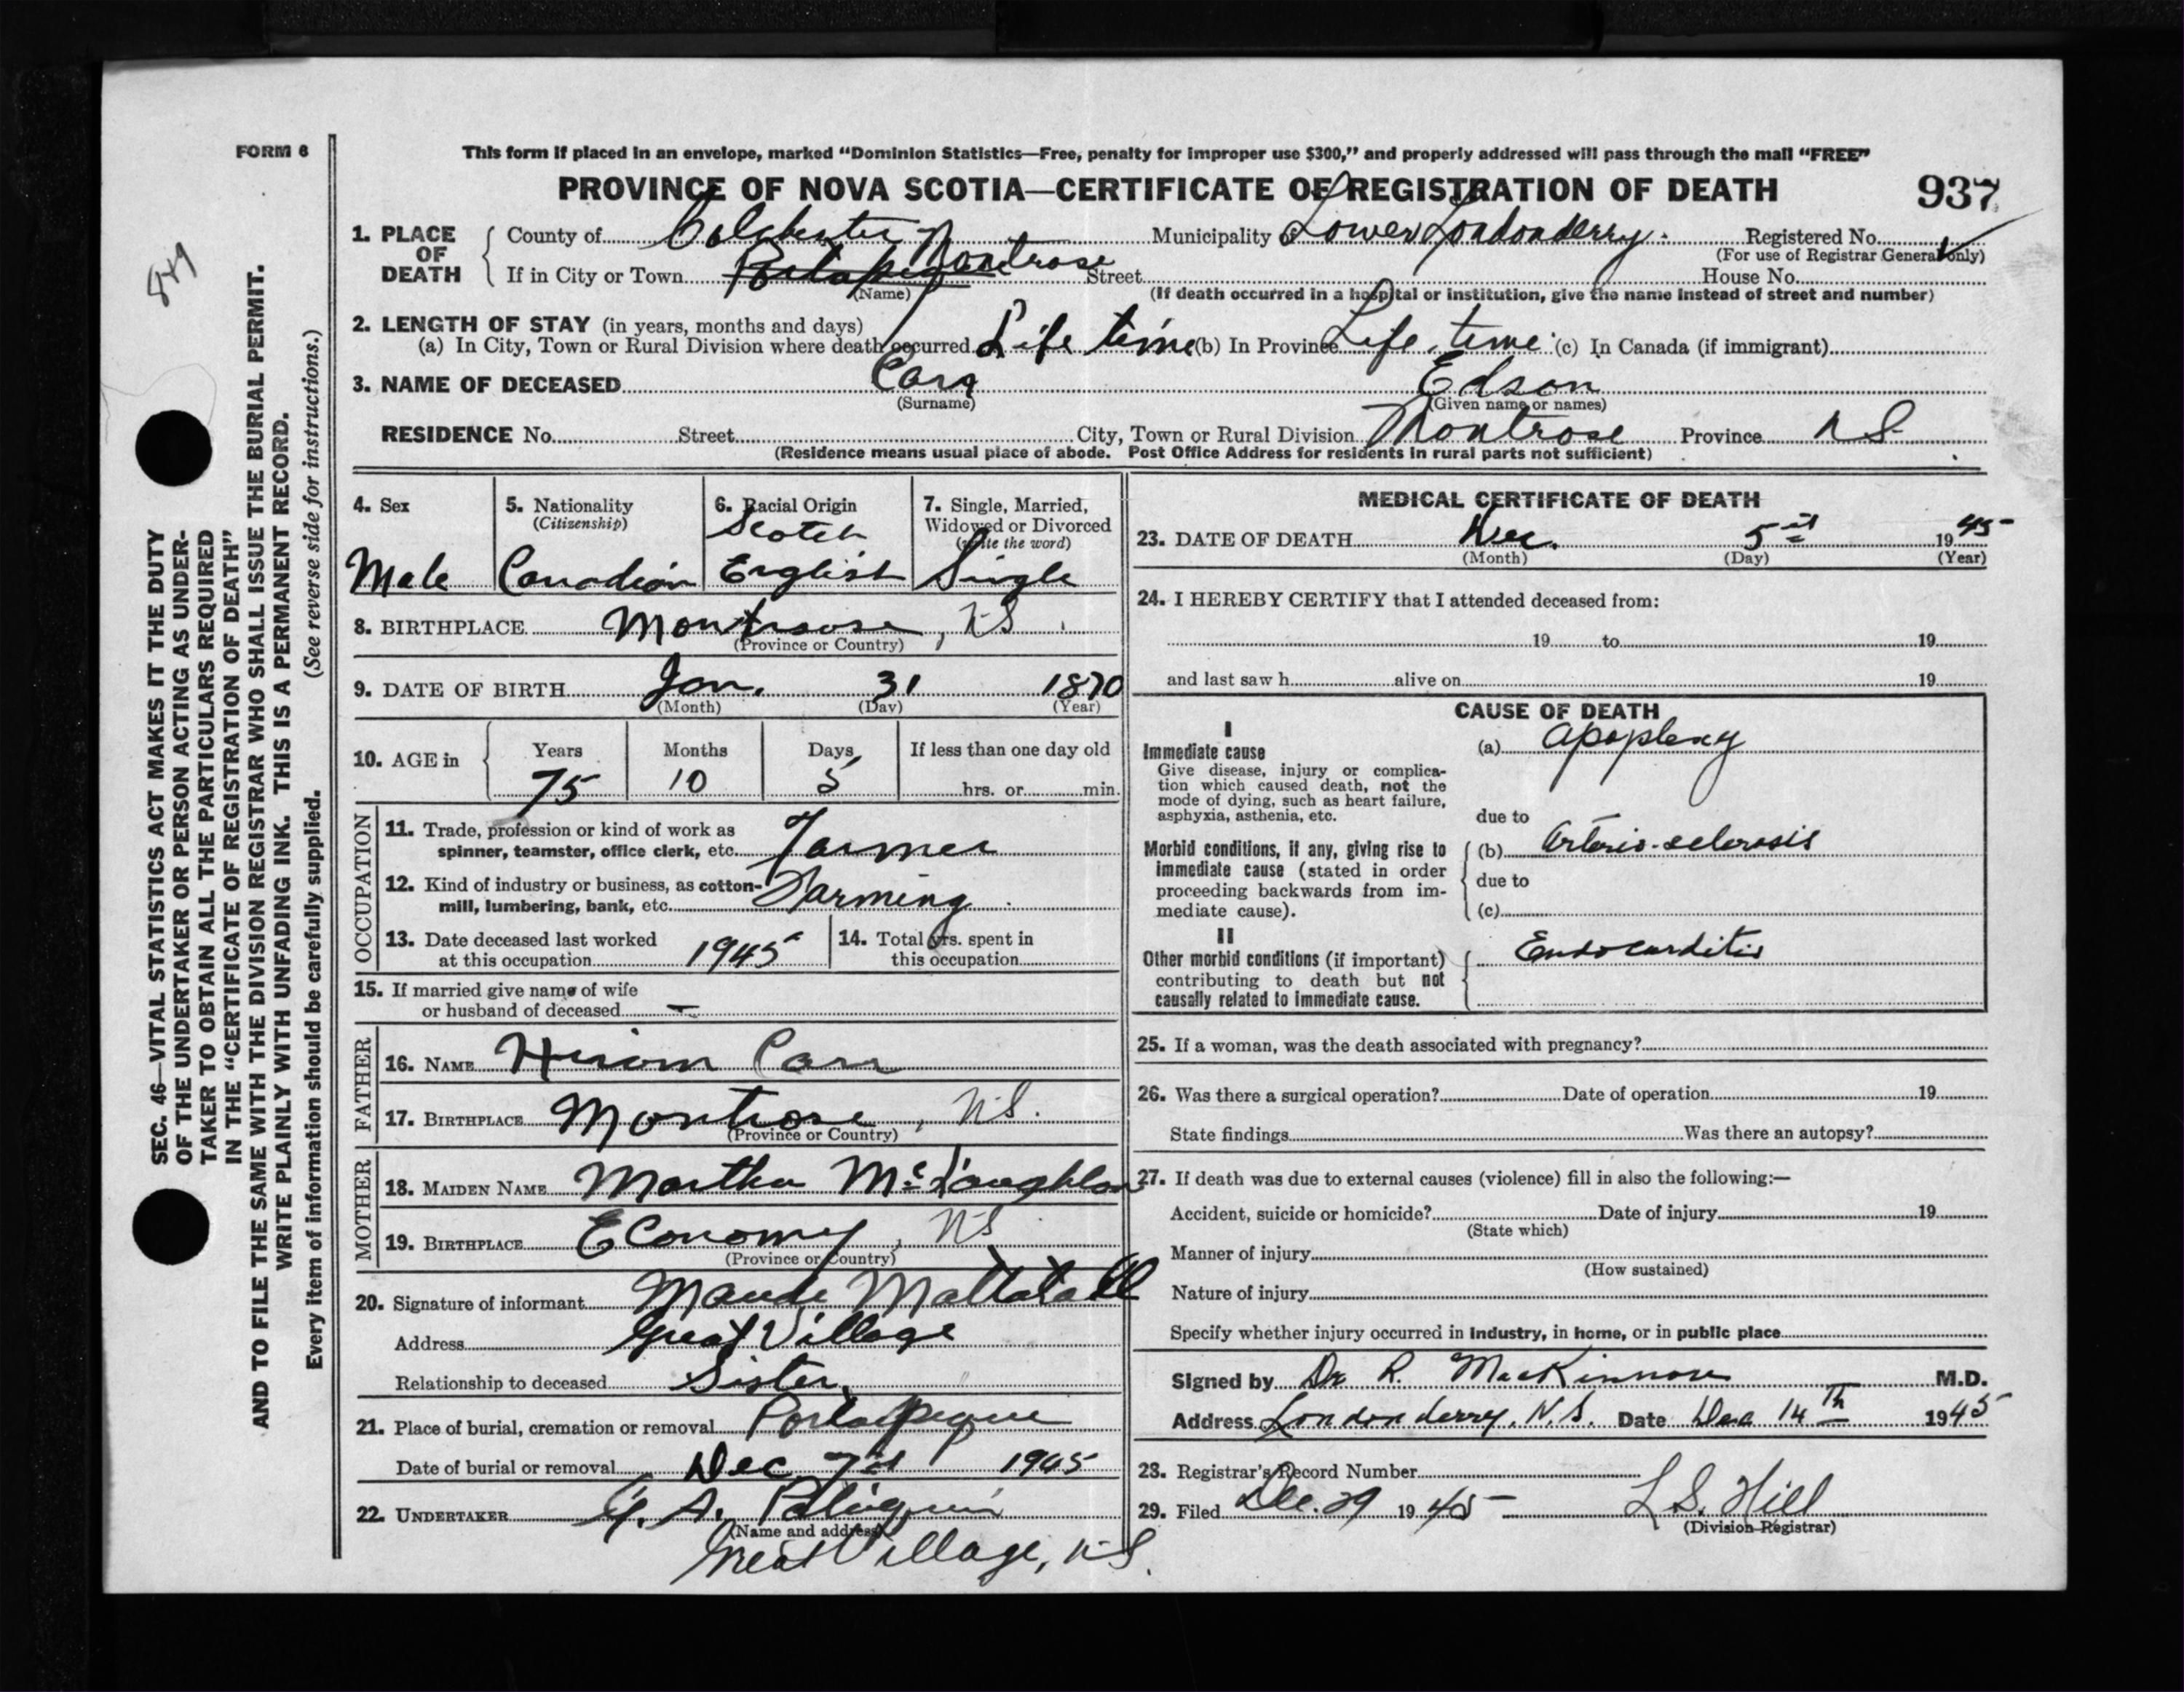 FORM 6
This form if placed in an envelope, marked “Dominion Statistics—Free, penalty for improper use $300,” and properly addressed will pass through the mail “FREE”
PROVINCE OF NOVA SCOTIA—CERTIFICATE OF REGISTRATION OF DEATH
937
849
SEC. 46—VITAL STATISTICS ACT MAKES IT THE DUTY
OF THE UNDERTAKER OR PERSON ACTING AS UNDER-
TAKER TO OBTAIN ALL THE PARTICULARS REQUIRED
IN THE “CERTIFICATE OF REGISTRATION OF DEATH”
AND TO FILE THE SAME WITH THE DIVISION REGISTRAR WHO SHALL ISSUE THE BURIAL PERMIT.
WRITE PLAINLY WITH UNFADING INK. THIS IS A PERMANENT RECORD.
Every item of information should be carefully supplied. (See reverse side for instructions.)
1. PLACE OF DEATH
County of Colchester Municipality of Lower Londonderry. Registered No.
(For use of Registrar General only)
If in City or Town Portapique Montrose Street House No.
(Name) (If death occurred in a hospital or institution, give the name instead of street and number)
2. LENGTH OF STAY (in years, months and days)
(a) In City, Town or Rural Division where death occurred Life time (b) In Province Life time (c) In Canada (if immigrant)
3. NAME OF DECEASED Carr Edson
(Surname) (Given name or names)
RESIDENCE No. Street City, Town or Rural Division Montrose Province N S.
(Residence means usual place of abode. Post Office Address for residents in rural parts not sufficient)
4. Sex
Male
5. Nationality
(Citizenship)
Canadian
6. Racial Origin
Scotch
English
7. Single, Married,
Widowed or Divorced
(write the word)
Single
8. BIRTHPLACE Montrose, N.S.
(Province or Country)
9. DATE OF BIRTH Jan. 31 1870
(Month) (Day) (Year)
10. AGE in
Years Months Days If less than one day old
75 10 5 hrs. or min.
OCCUPATION
11. Trade, profession or kind of work as
spinner, teamster, office clerk, etc. Farmer
12. Kind of industry or business, as cotton-
mill, lumbering, bank, etc. Farming
13. Date deceased last worked
at this occupation 1945
14. Total yrs. spent in
this occupation
15. If married give name of wife
or husband of deceased —
FATHER
16. NAME Hiram Carr
17. BIRTHPLACE Montrose, N.S.
(Province or Country)
MOTHER
18. MAIDEN NAME Martha McLaughlan
19. BIRTHPLACE Economy, N.S
(Province or Country)
20. Signature of informant Maude Mattatall
Address Great Village
Relationship to deceased Sister
21. Place of burial, cremation or removal Portapique
Date of burial or removal Dec 7th 1945
22. UNDERTAKER
(Name and address)
Great Village, N.S.
MEDICAL CERTIFICATE OF DEATH
23. DATE OF DEATH Dec. 5th 1945
(Month) (Day) (Year)
24. I HEREBY CERTIFY that I attended deceased from:
19 to 19
and last saw h alive on 19
CAUSE OF DEATH
I
Immediate cause
Give disease, injury or complica-
tion which caused death, not the
mode of dying, such as heart failure,
asphyxia, asthenia, etc.
(a) Apoplexy
due to
Morbid conditions, if any, giving rise to
immediate cause (stated in order
proceeding backwards from im-
mediate cause).
(b) Arterio-sclerosis
due to
(c)
II
Other morbid conditions (if important)
contributing to death but not
causally related to immediate cause.
Endocarditis
25. If a woman, was the death associated with pregnancy?
26. Was there a surgical operation? Date of operation 19
State findings Was there an autopsy?
27. If death was due to external causes (violence) fill in also the following:—
Accident, suicide or homicide? Date of injury 19
(State which)
Manner of injury
(How sustained)
Nature of injury
Specify whether injury occurred in industry, in home, or in public place
Signed by Dr R. MacKinnon M.D.
Address Londonderry, N.S. Date Dec 14th 1945
28. Registrar's Record Number
29. Filed Dec. 29 1945 L S. Hill
(Division Registrar)